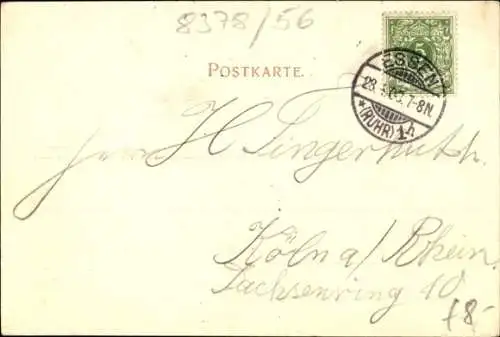 8378/56
POSTKARTE.
5
ESSEN
7-8N.
*(RUHR) 1h
Herrn H. Fingerhuth.
Köln a/Rhein.
Sachsenring 10
£8-